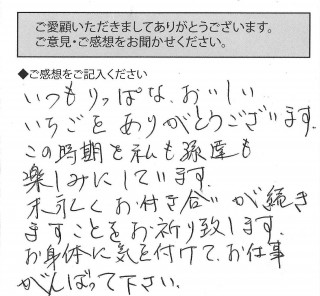 ご愛顧いただきましてありがとうございます。
ご意見・ご感想をお聞かせください。
◆ご感想をご記入ください
いつもりっぱな、おいしい
いちごをありがとうございます.
この時期を私も孫達も
楽しみにしています.
末永くお付き合いが続き
ますことをお祈り致します.
お身体に気を付けて、お仕事
がんばって下さい.